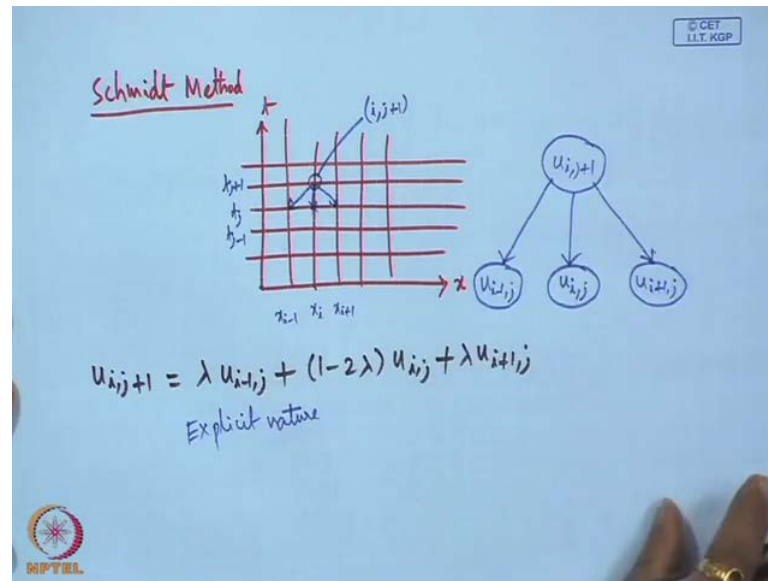 © CET
I.I.T. KGP
Schmidt Method
t
(i,j+1)
u_{i,j+1}
t_{j+1}
t_j
t_{j-1}
x
u_{i-1,j} u_{i,j} u_{i+1,j}
x_{i-1} x_i x_{i+1}
u_{i,j+1} = λ u_{i-1,j} + (1-2λ) u_{i,j} + λ u_{i+1,j}
Explicit nature
NPTEL